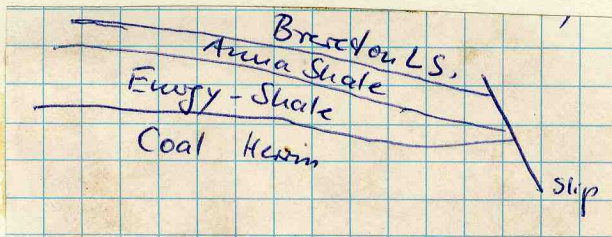 Brereton LS.
Anna Shale
Energy - Shale
Coal Herrin
Slip